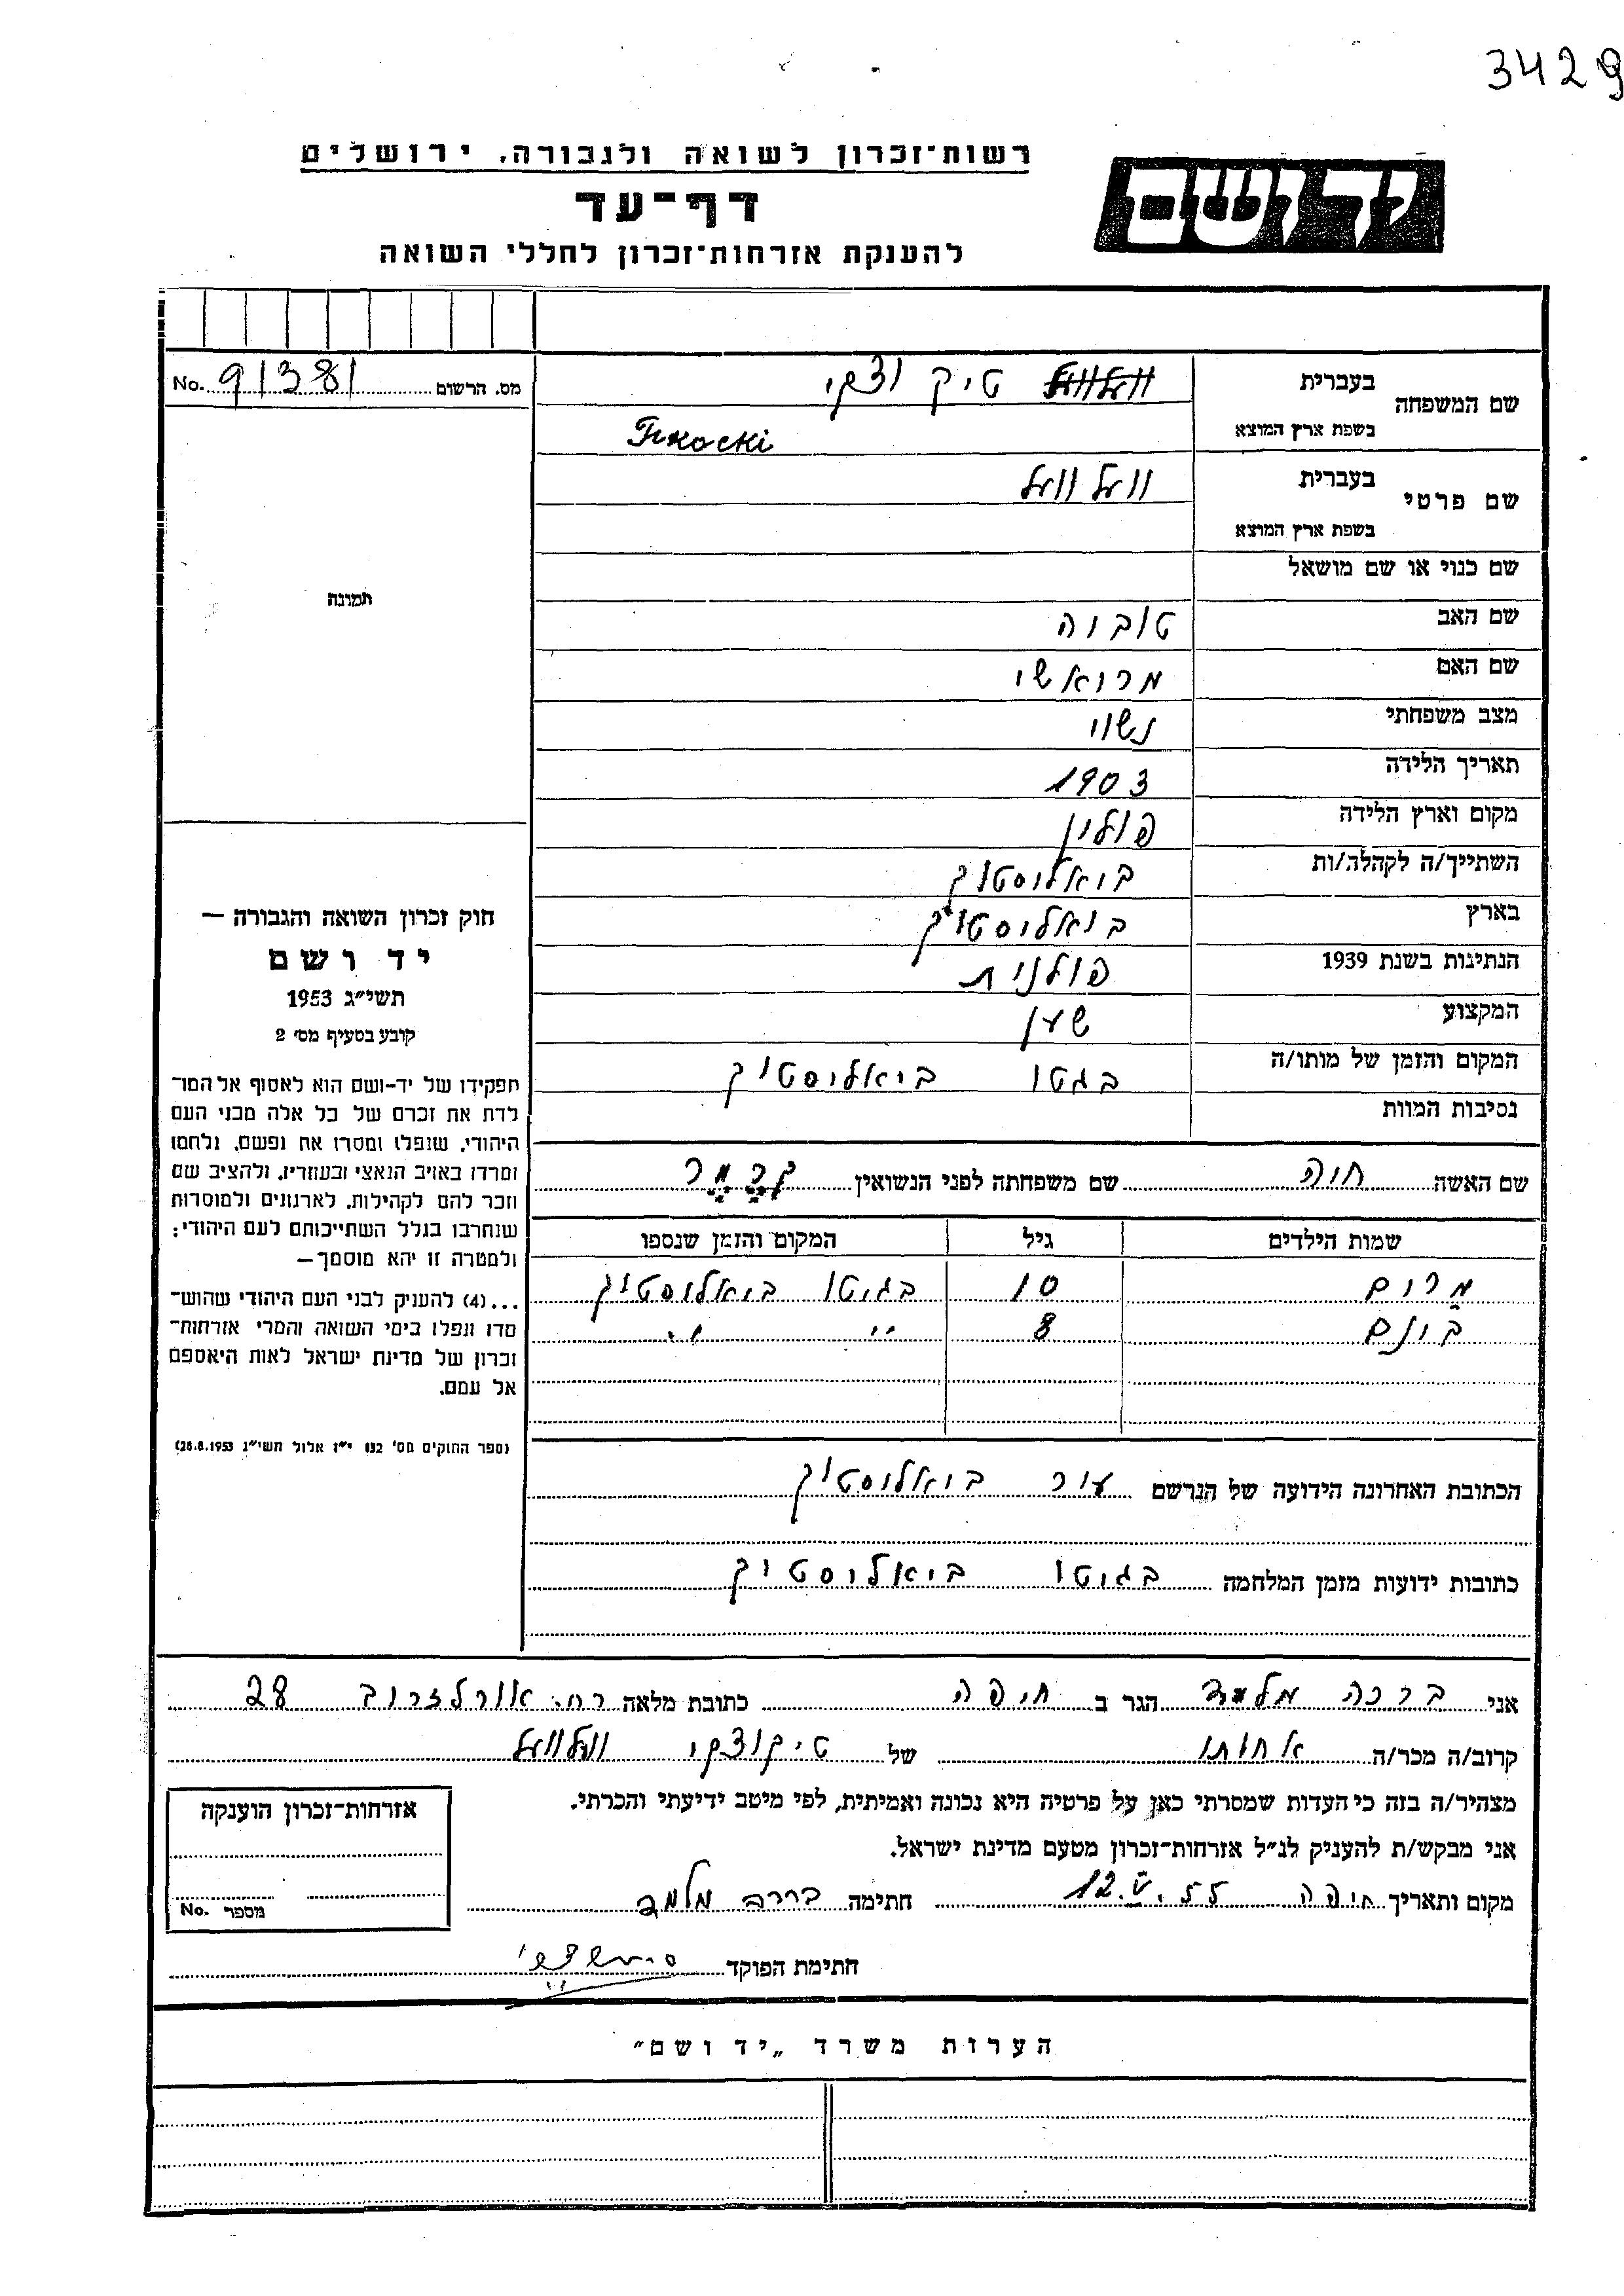 3429
רשות־זכרון לשואה ולגבורה, ירושלים
יד ושם
דף־עד
להענקת אזרחות־זכרון לחללי השואה
מס. הרשום No. 91381
שם המשפחה
בעברית טיקוצקי
בשפת ארץ המוצא Tikocki
שם פרטי
בעברית וועלוועל
בשפת ארץ המוצא
שם כנוי או שם מושאל
תמונה
שם האב טוביה
שם האם
מצב משפחתי נשוי
תאריך הלידה 1903
מקום וארץ הלידה פולין
השתייך/ה לקהלה/ות ביאליסטוק
בארץ ביאליסטוק
הנתינות בשנת 1939 פולנית
המקצוע שען
המקום והזמן של מותו/ה בגטו ביאליסטוק
נסיבות המוות
חוק זכרון השואה והגבורה —
יד ושם
תשי״ג 1953
קובע בסעיף מס׳ 2
תפקידו של יד-ושם הוא לאסוף אל המו־
לדת את זכרם של כל אלה מבני העם
היהודי, שנפלו ומסרו את נפשם, נלחמו
ומרדו באויב הנאצי ובעוזריו, ולהציב שם
וזכר להם לקהילות, לארגונים ולמוסדות
שנחרבו בגלל השתייכותם לעם היהודי;
ולמטרה זו יהא מוסמך—
...(4) להעניק לבני העם היהודי שהוש־
מדו ונפלו בימי השואה והמרי אזרחות־
זכרון של מדינת ישראל לאות היאספם
אל עמם.
(ספר החוקים מס׳ 132 י״ז אלול תשי״ג 28.8.1953)
שם האשה חוה שם משפחתה לפני הנשואין
שמות הילדים גיל המקום והזמן שנספו
מרים 10 בגיטו ביאליסטוק
בונם 8 " "
הכתובת האחרונה הידועה של הנרשם עיר ביאליסטוק
כתובות ידועות מזמן המלחמה בגיטו ביאליסטוק
אני ברכה מלמד הגר ב חיפה כתובת מלאה רח. אורלזרוב 28
קרוב/ה מכר/ה אחותו של טיקוצקי וועלוועל
מצהיר/ה בזה כי העדות שמסרתי כאן על פרטיה היא נכונה ואמיתית, לפי מיטב ידיעתי והכרתי.
אני מבקש/ת להעניק לנ״ל אזרחות־זכרון מטעם מדינת ישראל.
מקום ותאריך חיפה 12.V.55 חתימה ברכה מלמד
חתימת הפוקד
אזרחות־זכרון הוענקה
מספר No.
הערות משרד „יד ושם״